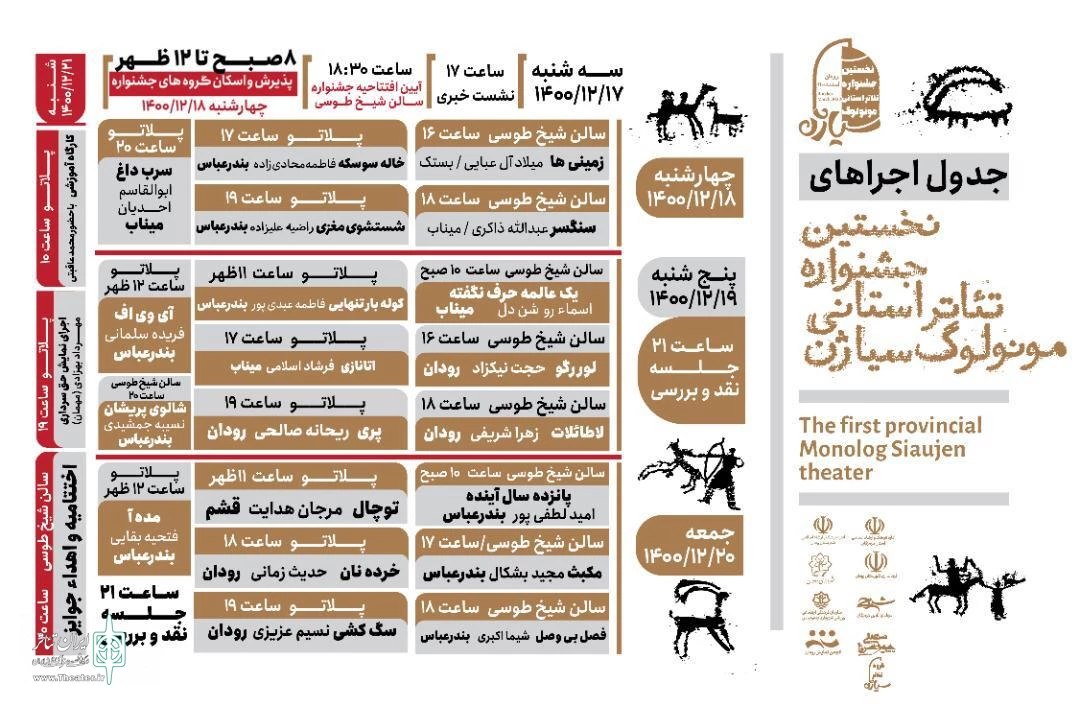 نخستین
جشنواره
تئاتر استانی
مونولوگ
سیاژن
جدول اجراهای
نخستین
جشنواره
تئاتر استانی
مونولوگ سیاژن
The first provincial
Monolog Siaujen
theater
سه شنبه
۱۴۰۰/۱۲/۱۷
ساعت ۱۷
نشست خبری
ساعت ۱۸:۳۰
آیین افتتاحیه جشنواره
سالن شیخ طوسی
۸ صبح تا ۱۲ ظهر
پذیرش و اسکان گروه های جشنواره
چهارشنبه ۱۴۰۰/۱۲/۱۸
چهارشنبه
۱۴۰۰/۱۲/۱۸
سالن شیخ طوسی ساعت ۱۶
زمینی ها میلاد آل عبایی / بستک
پلاتو ساعت ۱۷
خاله سوسکه فاطمه محادی زاده بندرعباس
پلاتو
ساعت ۲۰
سرب داغ
ابوالقاسم
احدیان
میناب
سالن شیخ طوسی ساعت ۱۸
سنگسر عبدالله ذاکری / میناب
پلاتو ساعت ۱۹
شستشوی مغزی راضیه علیزاده بندرعباس
پنج شنبه
۱۴۰۰/۱۲/۱۹
ساعت ۲۱
جلسه
نقد و بررسی
سالن شیخ طوسی ساعت ۱۰ صبح
یک عالمه حرف نگفته
اسماء رو شن دل میناب
پلاتو ساعت ۱۱ظهر
کوله بار تنهایی فاطمه عبدی پور بندرعباس
پلاتو
ساعت ۱۲ ظهر
آی وی اف
فریده سلمانی
بندرعباس
سالن شیخ طوسی ساعت ۱۶
لوررگو حجت نیکزاد رودان
پلاتو ساعت ۱۷
اتانازی فرشاد اسلامی میناب
سالن شیخ طوسی
ساعت ۲۰
شالوی پریشان
نسیبه جمشیدی
بندرعباس
سالن شیخ طوسی ساعت ۱۸
لاطائلات زهرا شریفی رودان
پلاتو ساعت ۱۹
پری ریحانه صالحی رودان
جمعه
۱۴۰۰/۱۲/۲۰
سالن شیخ طوسی ساعت ۱۰ صبح
پانزده سال آینده
امید لطفی پور بندرعباس
پلاتو ساعت ۱۱ظهر
توچال مرجان هدایت قشم
پلاتو
ساعت ۱۲ ظهر
مده آ
فتحیه بقایی
بندرعباس
سالن شیخ طوسی/ساعت ۱۷
مکبث مجید بشکال بندرعباس
پلاتو ساعت ۱۸
خرده نان حدیث زمانی رودان
سالن شیخ طوسی ساعت ۱۸
فصل بی وصل شیما اکبری بندرعباس
پلاتو ساعت ۱۹
سگ کشی نسیم عزیزی رودان
ساعت ۲۱
جلسه
نقد و بررسی
شنبه
۱۴۰۰/۱۲/۲۱
پلاتو ساعت ۱۰
کارگاه آموزشی باحضور محمد عاقبتی
پلاتو ساعت ۱۹
اجرای نمایش حق سرداری
مهرداد بهزادی (مهمان)
سالن شیخ طوسی ساعت ۲۰
اختتامیه و اهداء جوایز
ایران تئاتر
www.Theater.ir